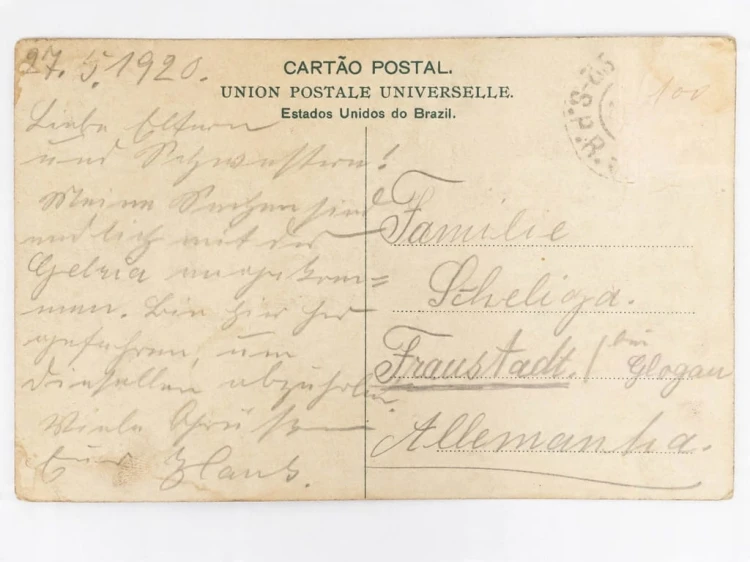 27.5.1920.
CARTÃO POSTAL.
UNION POSTALE UNIVERSELLE.
Estados Unidos do Brazil.
Liebe Eltern
und Schwestern!
Meine Sachen sind
endlich mit der
Gelria angekom=
men. Bin hier her
gefahren, um
dieselben abzuholen.
Viele Grüße
Euer Hans.
100
Familie
Scheliga.
Fraustadt./ bei Glogau
Allemanha.